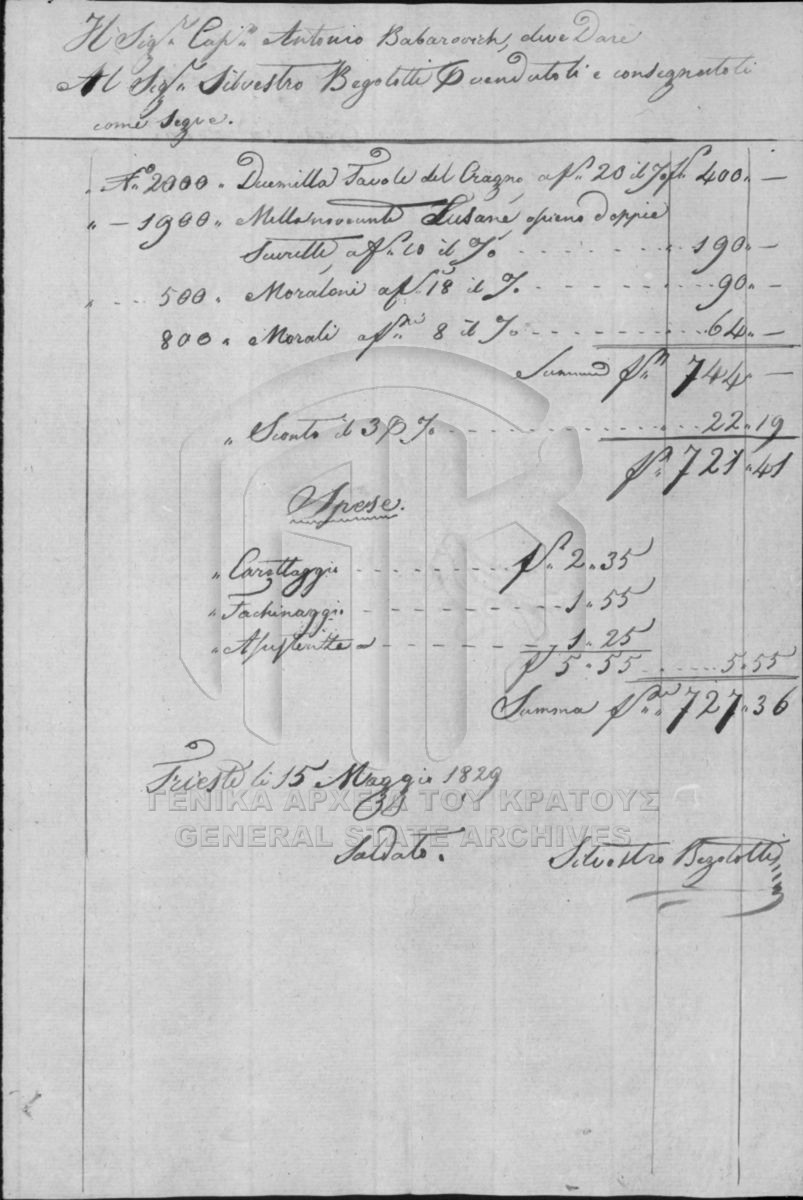 Il Sigr. Capn. Antonio Babarovich, deve Dare
Al Sigr. Silvestro Begolotti P vendutoli e consegnatoli
come segue.
„ No. 2000 „ Duemilla Tavole del Cragno, a f „ 20 il % f „ 400 „ —
„ — 1900 „ Millanovecento doppie
Scurette, a f „ 10 il % - - - „ 190 „ —
„ - - - 500 „ Moraloni a f „ 18 il % - - - 90 „ —
800 „ Morali a f „ 8 il % - - - 64 „ —
Summa f „ 744 „ —
„ Sconto il 3 P % - - - 22 „ 19
f „ 721 „ 41
Spese.
„ Carettaggio - - - f „ 2 „ 35
„ Fachinaggio - - - 1 „ 55
„ - - - 1 „ 25
f 5 „ 55 - - - 5 „ 55
Summa f „ 727 „ 36
Trieste li 15 Maggio 1829
ΓΕΝΙΚΑ ΑΡΧΕΙΑ ΤΟΥ ΚΡΑΤΟΥΣ
GENERAL STATE ARCHIVES
Saldato. Silvestro Begolotti